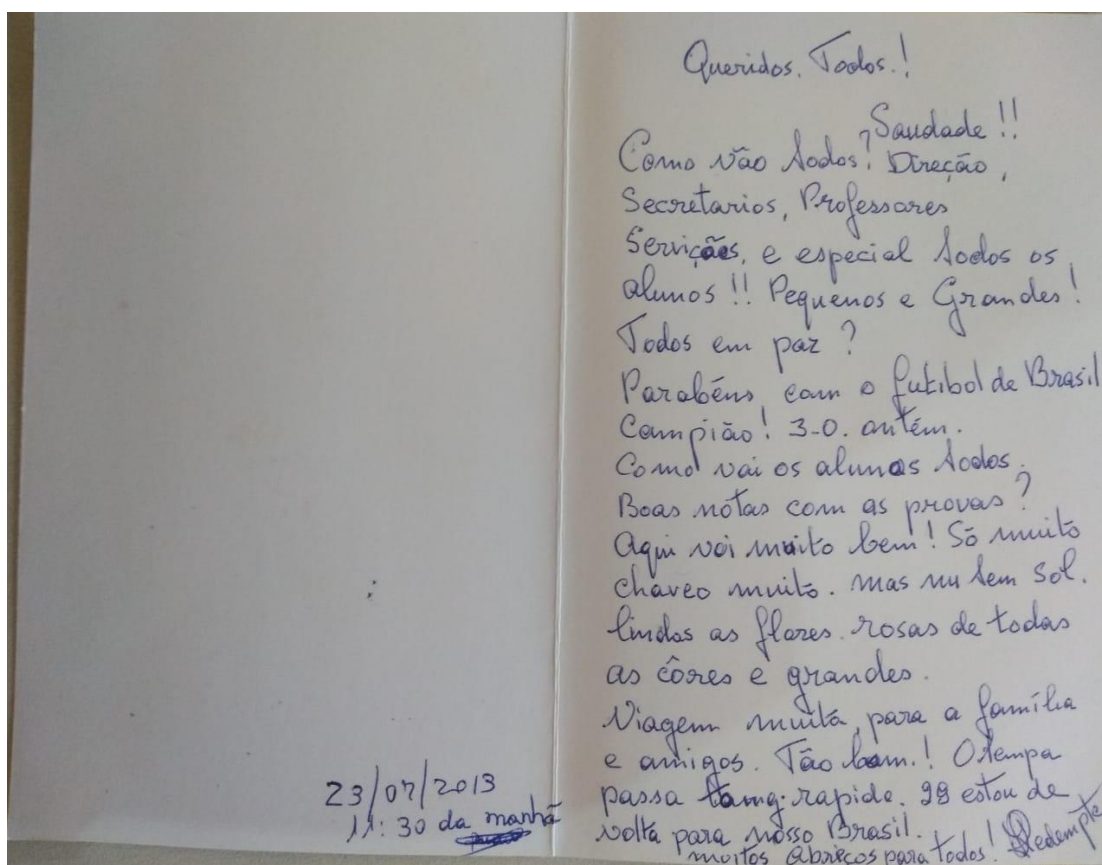 Queridos. Todos.!
Saudade!!
Como vão todos? Direção,
Secretarios, Professores
Serviçães, e especial todos os
alunos!! Pequenos e Grandes!
Todos em paz?
Parabéns, com o futibol de Brasil
Campião! 3-0. antém.
Como vai os alunos todos.
Boas notas com as provas?
Aqui vai muito bem! Só muito
chaveo muito. mas nu tem Sol.
lindas as flores. rosas de todas
as côres e grandes.
Viagem muita, para a família
e amigos. Tão bom.! O tempa
passa rapide. 28 estou de
volta para nosso Brasil.
muitos abraços para todos! Redempta
23/07/2013
11:30 da manhã